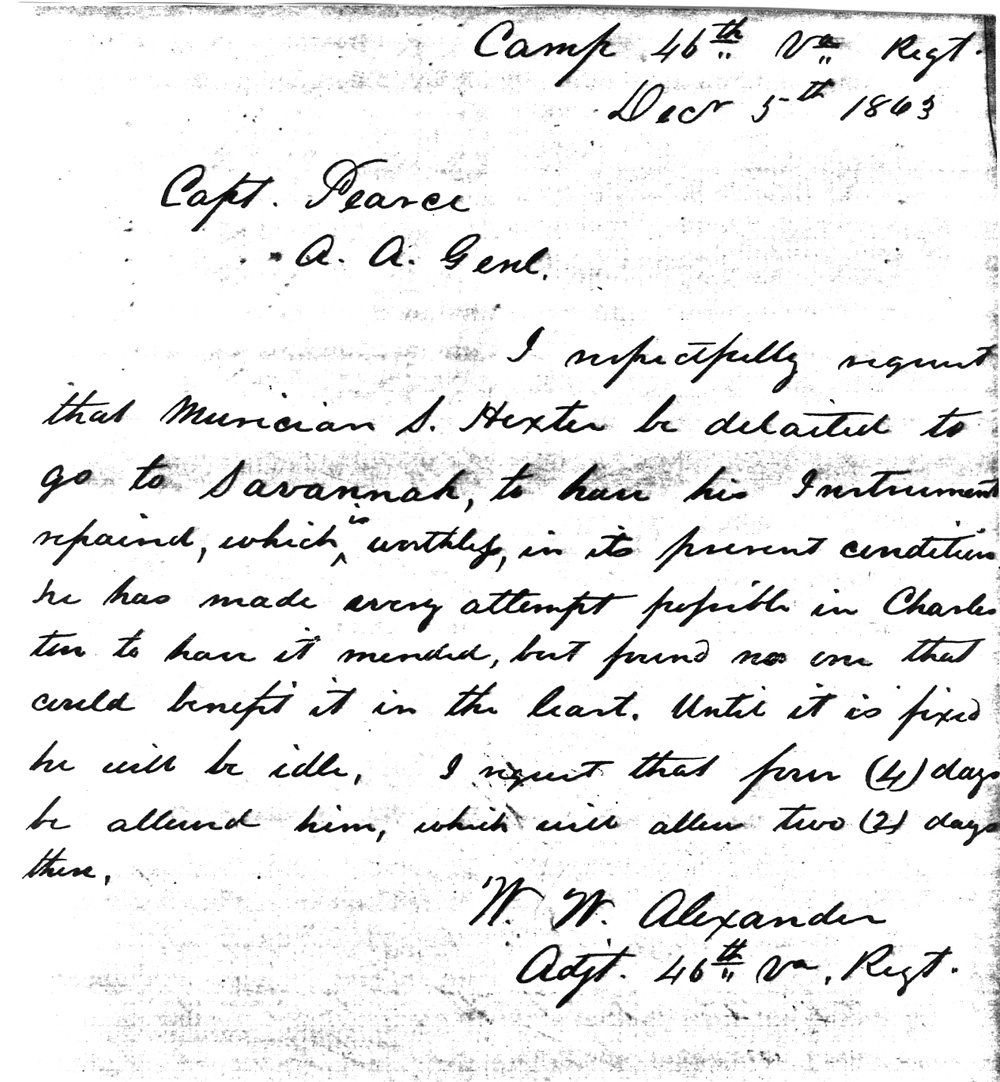 Camp 46th Va Regt.
Decr 5th 1863
Capt. Pearce
A. A. Genl.
I respectfully request
that Musician S. Hexter be detailed to
go to Savannah, to have his Instrument
repaired, which is worthless, in its present condition
he has made every attempt possible in Charles
ton to have it mended, but found no one that
could benefit it in the least. Until it is fixed
he will be idle, I request that four (4) days
be allowed him, which will allow two (2) days
there,
W. W. Alexander
Adjt. 46th Va, Regt.